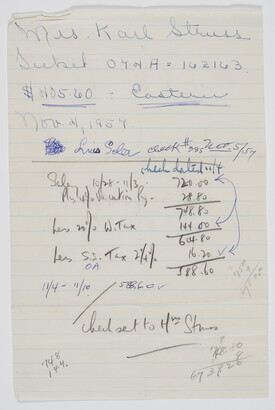 Mrs. Karl Struss
Ticket 07HA = 162163
$405.60 - Eastern
Nov 4, 1957
Luis Sola check #
check dated 11/4
Salary 10/28 - 11/3 720.00
Plus 4% Vacation Pay - 28.80
748.80
Less 20% W. Tax 144.00
604.80
Less S.S. Tax 2¼% 16.20 ✓
OA 588.60
11/4 - 11/10 588.60 ✓
check sent to Mrs Struss
748
144.